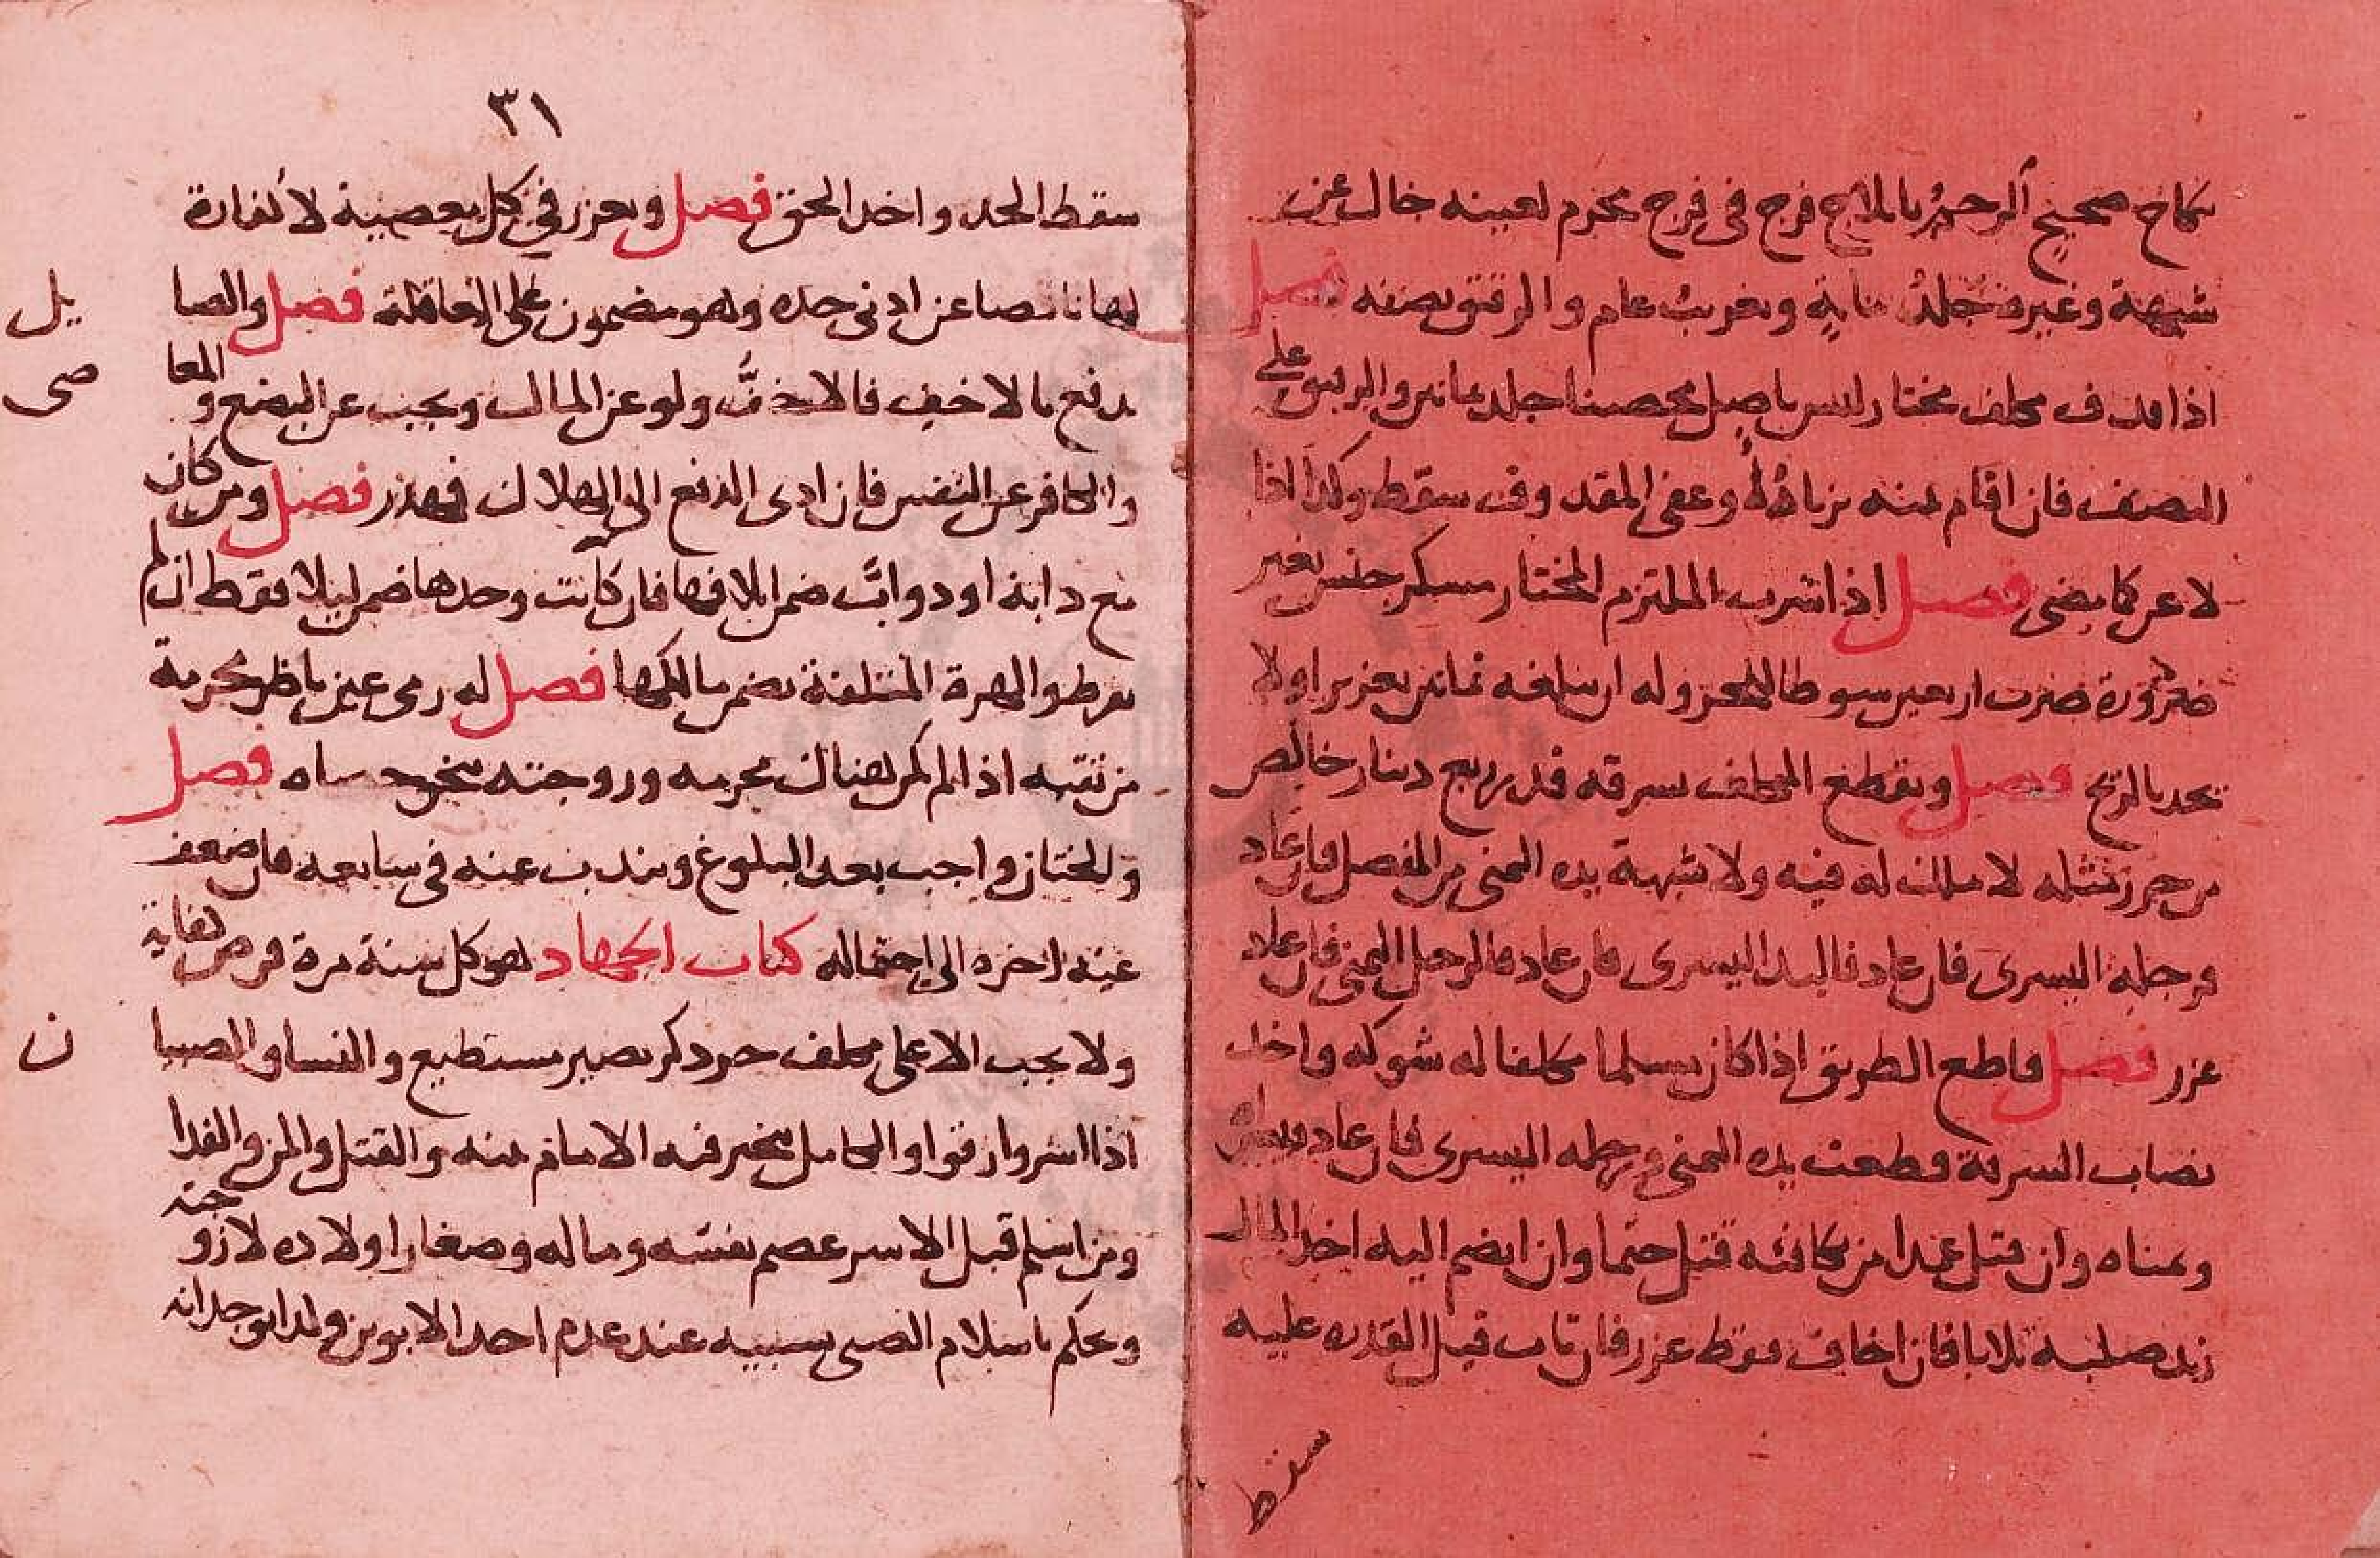 نكاح صحيح الرجم بايلاج فرج في فرج محرم لعينه خال عن
شبهة وغيره جلد ماية وتغريب عام والرقيق نصفه فصل
اذا قدف مكلف مختار ليس باصل محصنا جلد ثمانين والرقيق على
النصف فان اقام بينه بزناه او عفى المقدوف سقط وكذا اذا
لاعن كما مضى فصل اذا شرب الملتزم المختار مسكر جنس بغير
ضرورة ضرب اربعين سوطا وله ان يبلغه ثمانين تعزيرا ولا
يحد بالريح فصل ويقطع المكلف بسرقه قدر ربع دينار خالص
من حرز مثله لا ملك له فيه ولا شبهة يده اليمنى من المفصل فان عاد
فرجله اليسرى فان عاد فاليد اليسرى فان عاد فالرجل اليمنى فان عاد
عزر فصل قاطع الطريق اذا كان مسلما مكلفا له شوكه واخد
نصاب السرقة قطعت يده اليمنى ورجله اليسرى فان عاد فيسراه
ويمناه وان قتل عمدا من يكافئه قتل حتما وان انضم اليه اخد المال
زيد صلبه ثلاثا فان اخاف فقط عزر فان تاب قبل القدره عليه
سقط
٣١
سقط الحد واخد الحق فصل ويعزر في كل معصية لا كفارة
لها ناقصا عن ادنى حده وهو مضمون على العاقلة فصل والصا
يل
يدفع بالاخف فالاخف ولو عن المال ويجب عن البضع والمعا
صى
والكافر عن النفس فان ادى الدفع الى الهلاك فهدر فصل ومن كان
مع دابة او دواب ضمن اتلافها فان كانت وحدها ضمن ليلا فقط ان لم
يفرط والهرة المتلفة يضمن مالكها فصل له رمى عين ناظر بحرمة
من ثقبه اذا لم يكن هناك محرمه وزوجته بنحو حصاه فصل
والختان واجب بعد البلوغ ويندب عنه في سابعه فان ضعف
عنه اخره الى احتماله كتاب الجهاد هو كل سنة مرة فرض كفاية
ولا يجب الا على مكلف حر ذكر بصير مستطيع والنسا والصبيا
ن
اذا اسروا رقوا والكامل يتخير فيه الامام منه والقتل والمن والفدا
ومن اسلم قبل الاسر عصم نفسه وماله وصغار اولاده لا زوجته
ويحكم باسلام الصبي بسبيه عند عدم احد الابوين